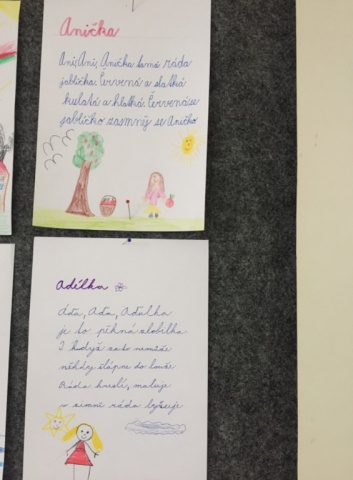 Anička
Ani, Ani, Anička samá ráda
jablíčka. Červená a sladká
kulatá a hladká. Červené se
jablíčko zasměj se Aničko
Adélka
Áďa, Aďa, Adélka
je to pěkná zlobilka.
I když zato nemůže
někdy šlápne do louže
Ráda kreslí, maluje
v zimě ráda lyžuje